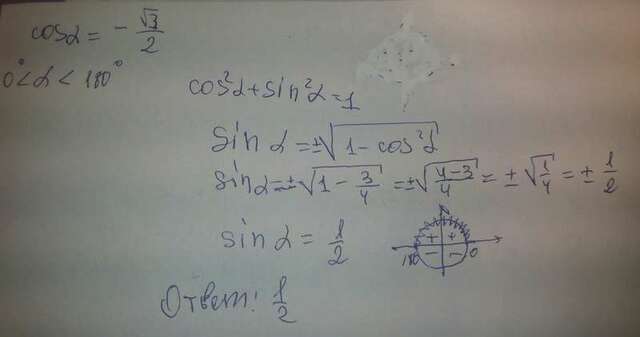 cosα = - √3/2
0° < α < 180°
cos²α + sin²α = 1
sin α = ±√(1 - cos²α)
sin α = ±√(1 - 3/4) = ±√((4-3)/4) = ±√(1/4) = ± 1/2
sin α = 1/2
+ +
180 - - 0
Ответ: 1/2